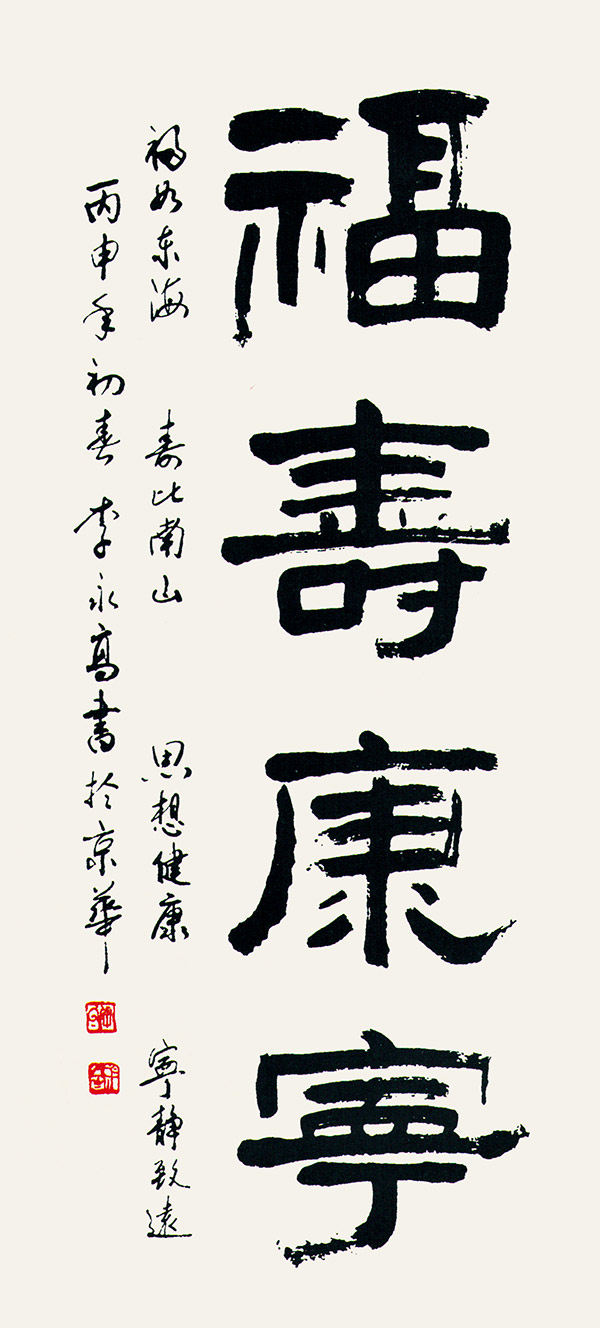 福壽康寧
福如东海 壽比南山 思想健康 寧静致遠
丙申年初春 李永高書於京華